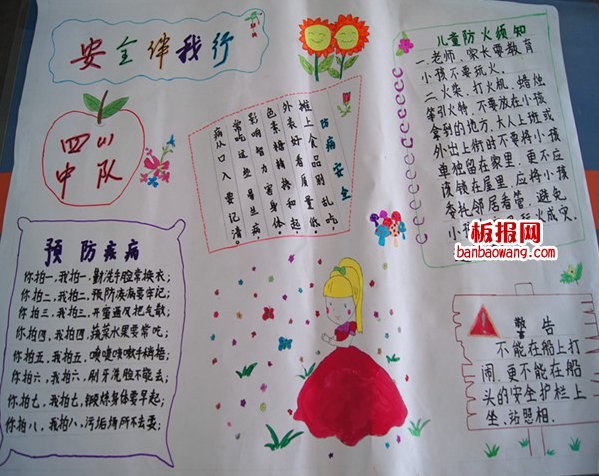 安全伴我行
四(1)
中队
防病安全
摊上食品别乱吃,
外表好看质量低,
色素糖精搀和起,
影响智力害身体
常吃这些易生病,
病从口入要记清。
儿童防火须知
一、老师、家长要教育
小孩不要玩火。
二、火柴、打火机、蜡烛
等引火物,不要放在小孩
拿到的地方,大人上班或
外出上街时不要将小孩
单独留在家里,更不应
该锁在屋里,应将小孩
委托邻居看管,避免
玩火成灾.
板报网
banbaowang.com
预防疾病
你拍一,我拍一,勤洗手脸常换衣;
你拍二,我拍二,预防疾病要牢记;
你拍三,我拍三,开窗通风把气散;
你拍四,我拍四,蔬菜水果要常吃;
你拍五,我拍五,喷嚏咳嗽手掩捂;
你拍六,我拍六,刷牙洗脸不能丢;
你拍七,我拍七,锻炼身体要早起;
你拍八,我拍八,污垢场所不去耍;
警告
不能在船上打
闹,更不能在船
头的安全护栏上
坐、站照相.